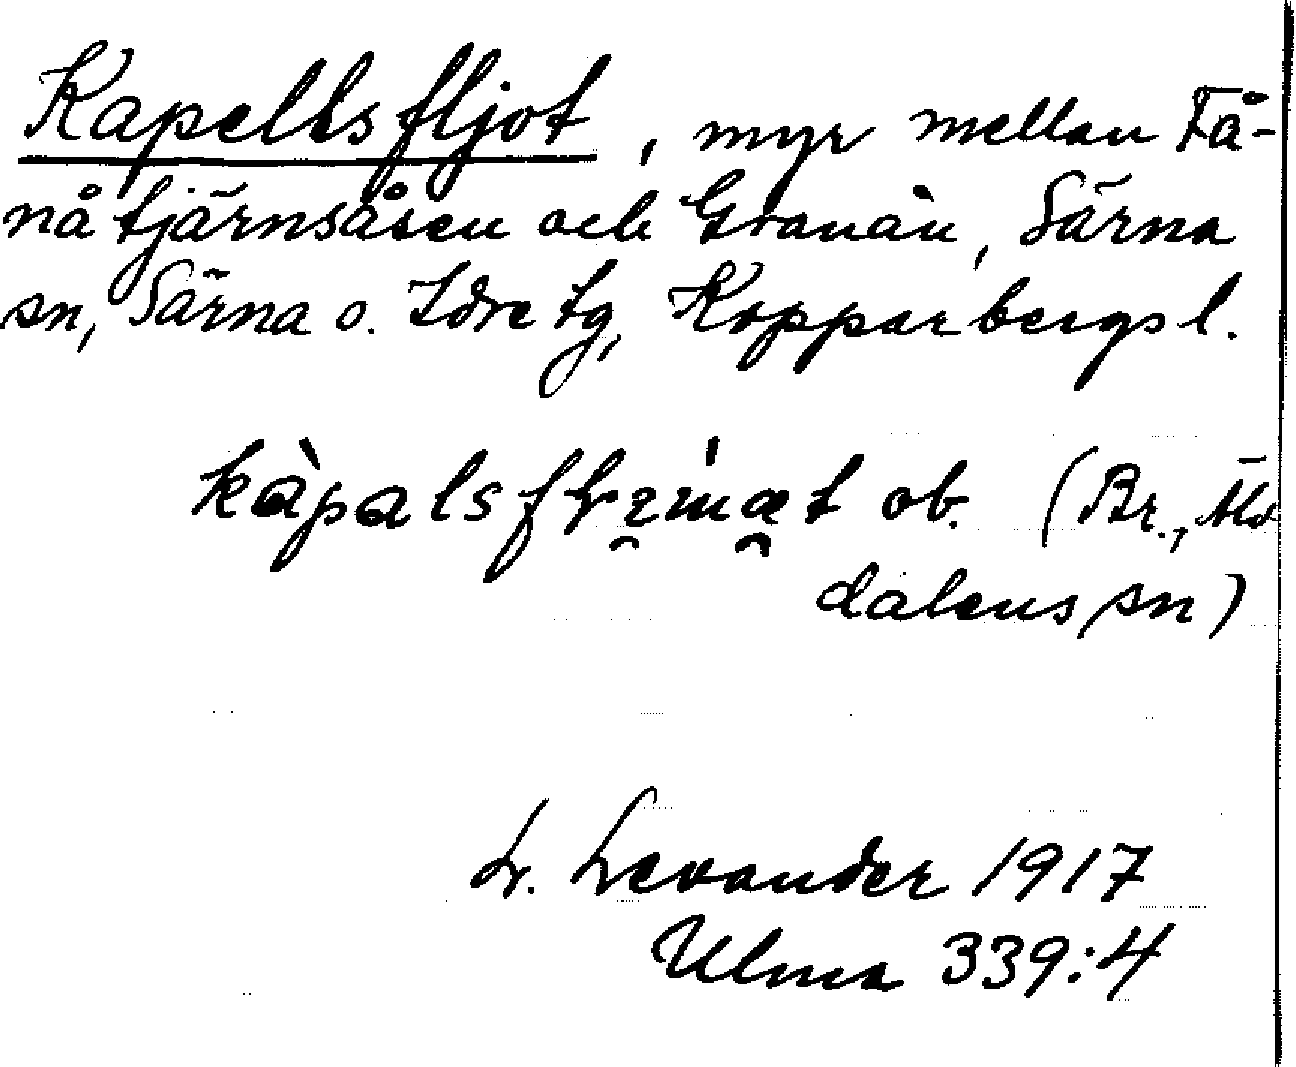 Kapellsfljot, myr mellan Få-
nåtjärnsåsen och Granån, Särna
sn, Särna o. Idre tg, Kopparbergs l.
ob. (Br., Älv
dalens sn)
L. Levander 1917
Ulma 339:4